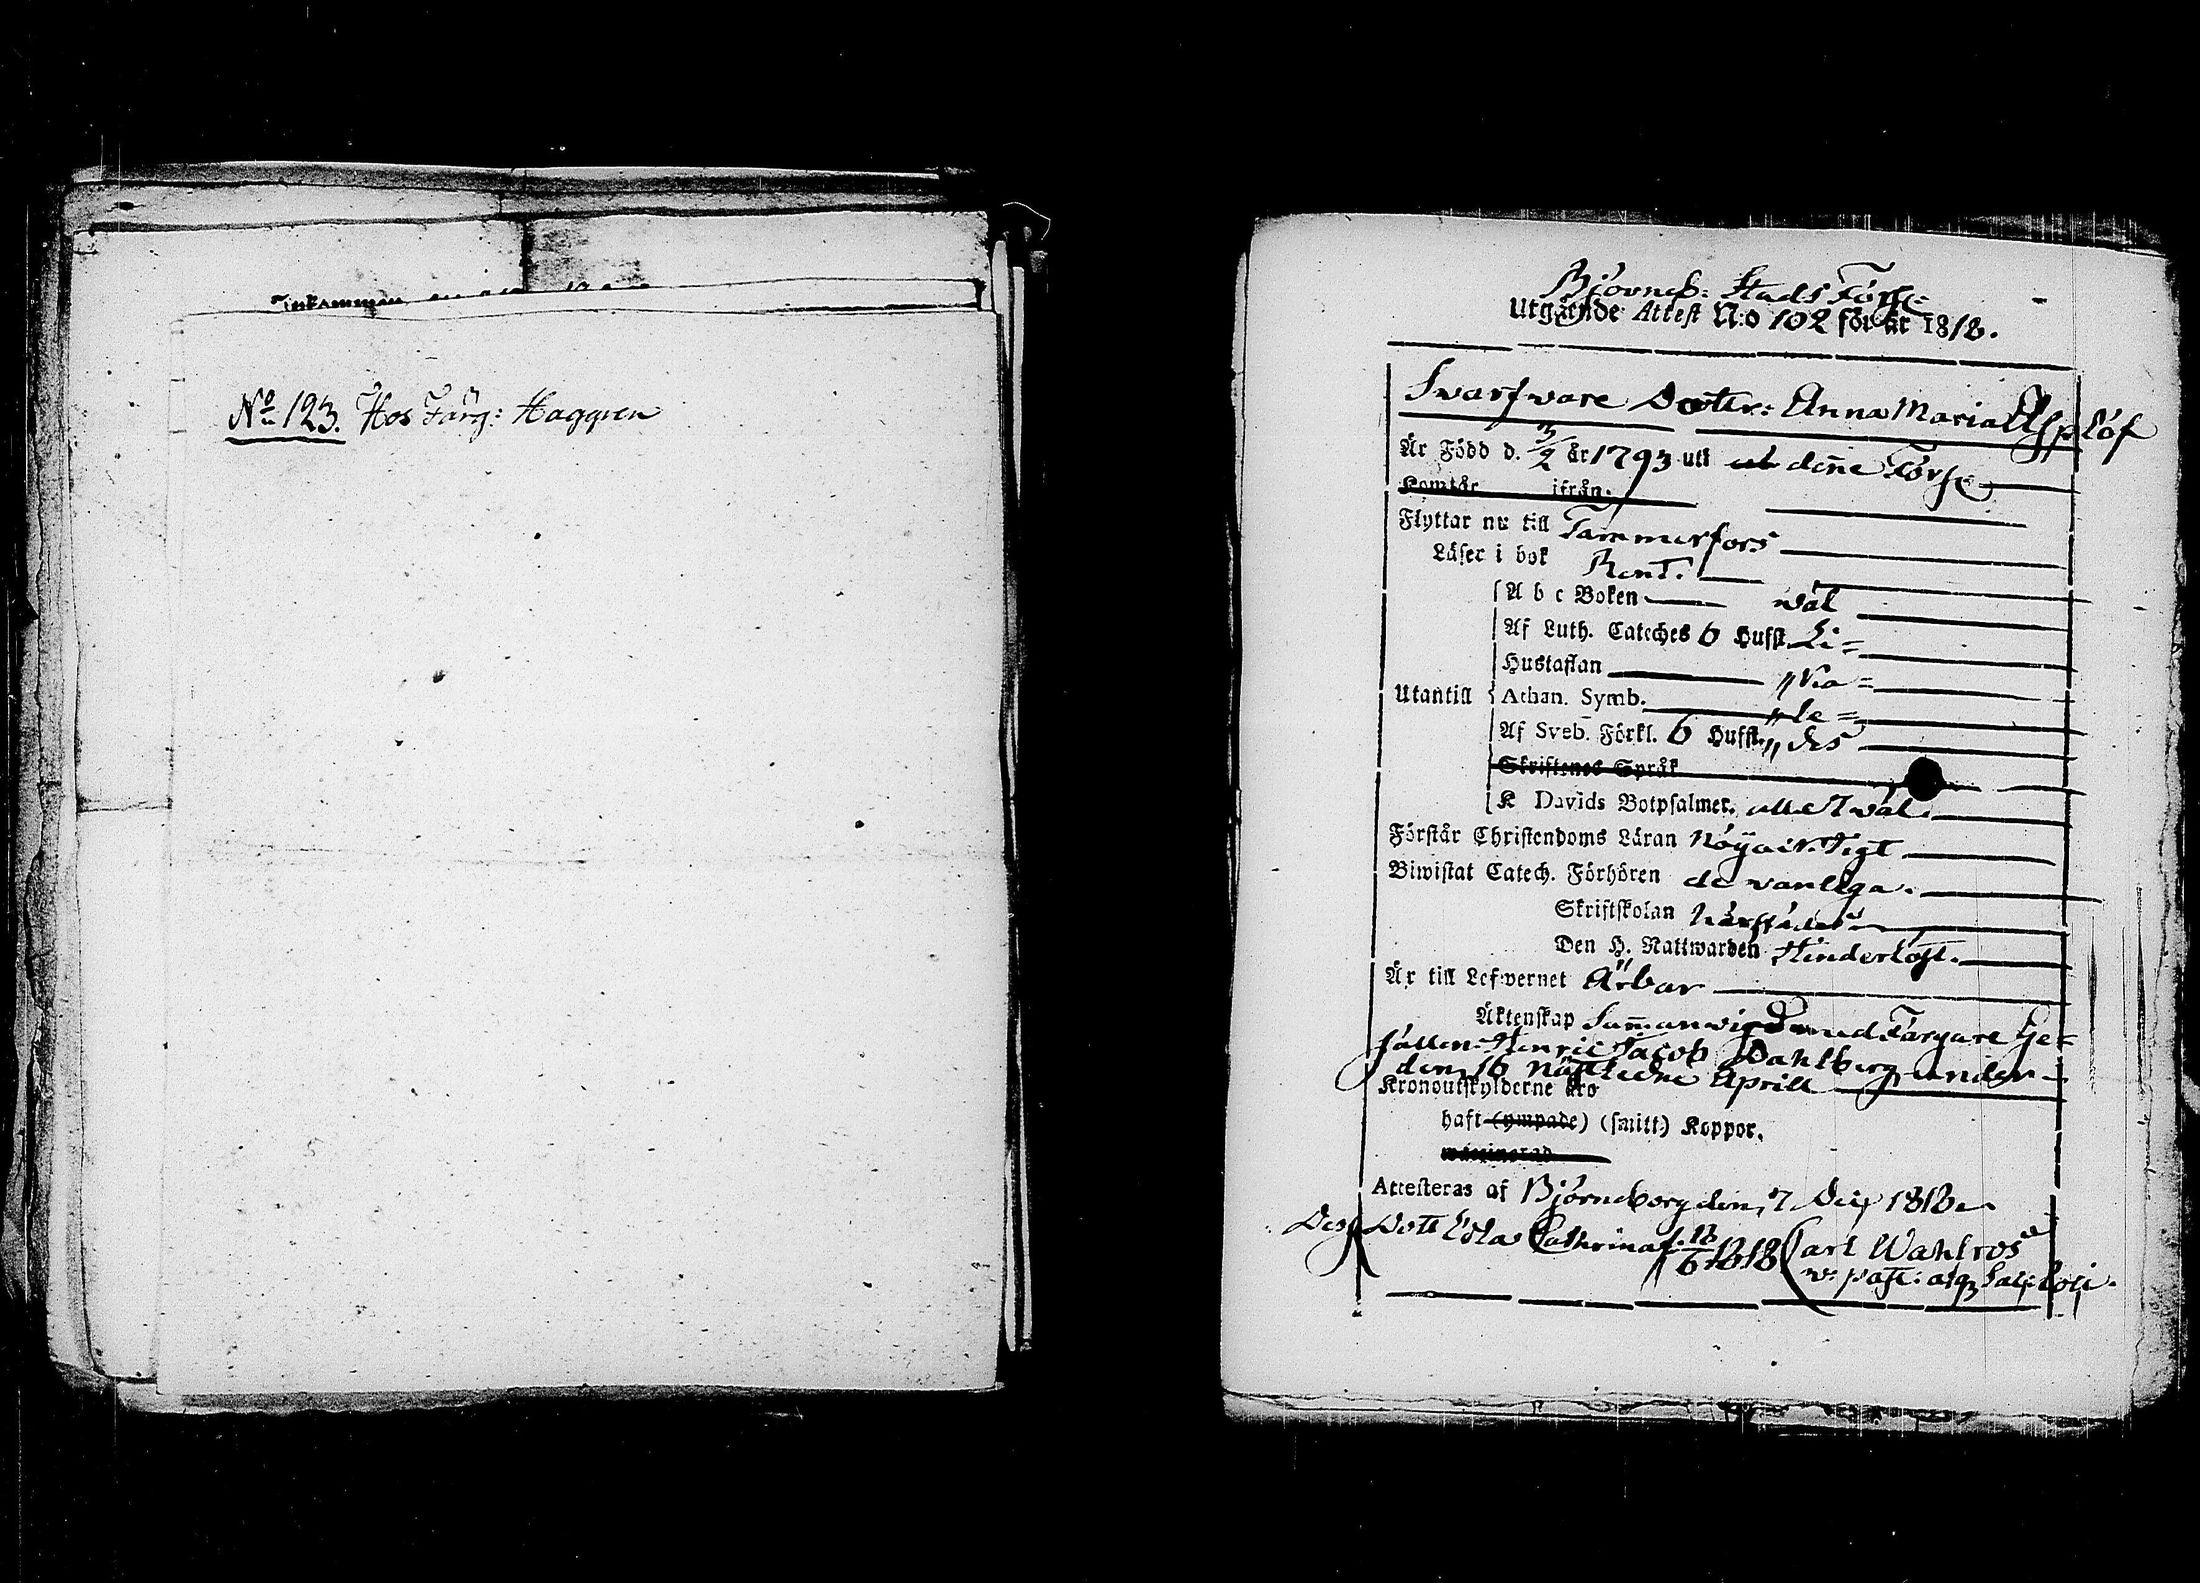 No 123. Hos Färg: Haggren
Björneb: Stads Förs:
Utgående Attest N:o 102 för år 1818.
Swarfware Dotter: Anna Maria Asplöf
Är Född d. 3/2 år 1793 uti denne Förs:
Komt år ifrån
Flyttar nu till Tammerfors
Läser i bok Rent.
A b c Boken wäl
Af Luth. Cateches 6 Hufst. Li=
Hustaflan
Utantill Athan. Symb. "le=
Af Sveb. Förkl. 6 Hufst. "des
Skriftenes Språk
K Davids Botpsalmer. alla 7 wäl.
Förstår Christendoms Läran
Biwistat Catech. Förhören de vanliga.
Skriftskolan härstädes
Den H. Nattwarden Hinderlöst.
Är till Lefwernet Ärbar
Äktenskap Samanvigd med Färgare Ge=
sällen Henric Jacob Dahlberg under
den 16 nästledne Aprill
Kronoutskylderne äro
haft (ympade) (smitt) Koppor.
waccinerad
Attesteras af Björneborg den 7 Dec 1818
Des Dott Lovisa Cathrina f. 18/6 1818 Carl Wahlroos
w: past: